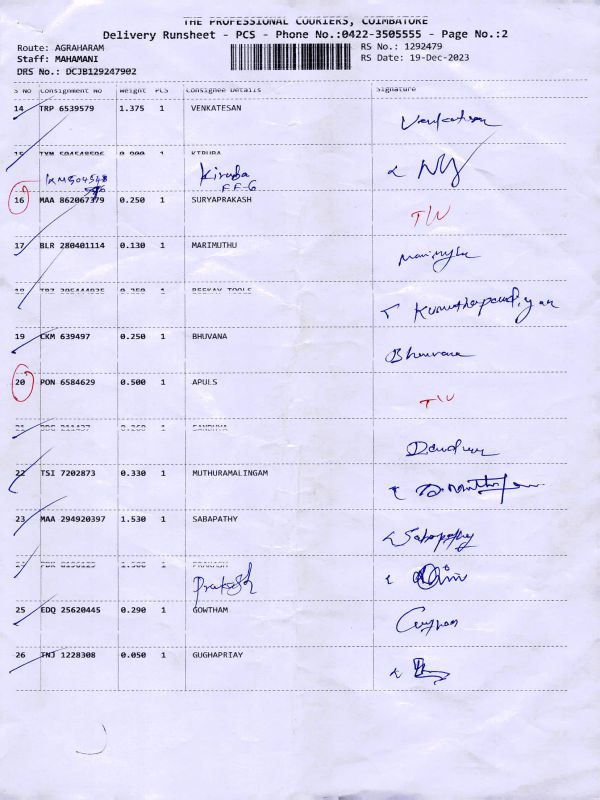 THE PROFESSIONAL COURIERS, COIMBATORE
Delivery Runsheet - PCS - Phone No.:0422-3505555 - Page No.:2
Route: AGRAHARAM
RS No.: 1292479
Staff: MAHAMANI
RS Date: 19-Dec-2023
DRS No.: DCJB129247902
S No Consignment No Weight PCS Consignee Details Signature
14 TRP 6539579 1.375 1 VENKATESAN Venkatesan
15 1 KIRUBA
Kiruba
FF-6
16 MAA 862067379 0.250 1 SURYAPRAKASH
17 BLR 280401114 0.130 1 MARIMUTHU
18 0.250 1 BEEKAY TOOLS
19 CKM 639497 0.250 1 BHUVANA Bhuvana
20 PON 6584629 0.500 1 APULS
21 1 SANDHYA
22 TSI 7202873 0.330 1 MUTHURAMALINGAM
23 MAA 294920397 1.530 1 SABAPATHY Sabapathy
24 1 PRAKASH
Prakash
25 EDQ 25620445 0.290 1 GOWTHAM
26 TNJ 1228308 0.050 1 GUGHAPRIAY